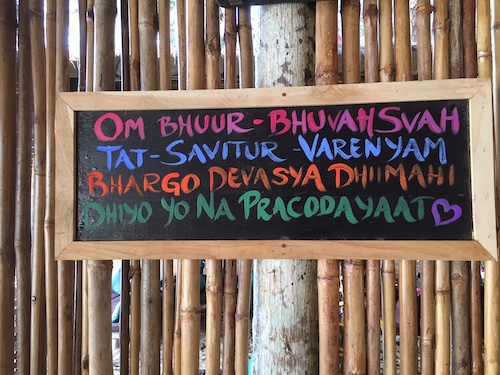 OM BHUUR-BHUVAH SVAH
TAT-SAVITUR VARENYAM
BHARGO DEVASYA DHIIMAHI
DHIYO YO NA PRACODAYAAT